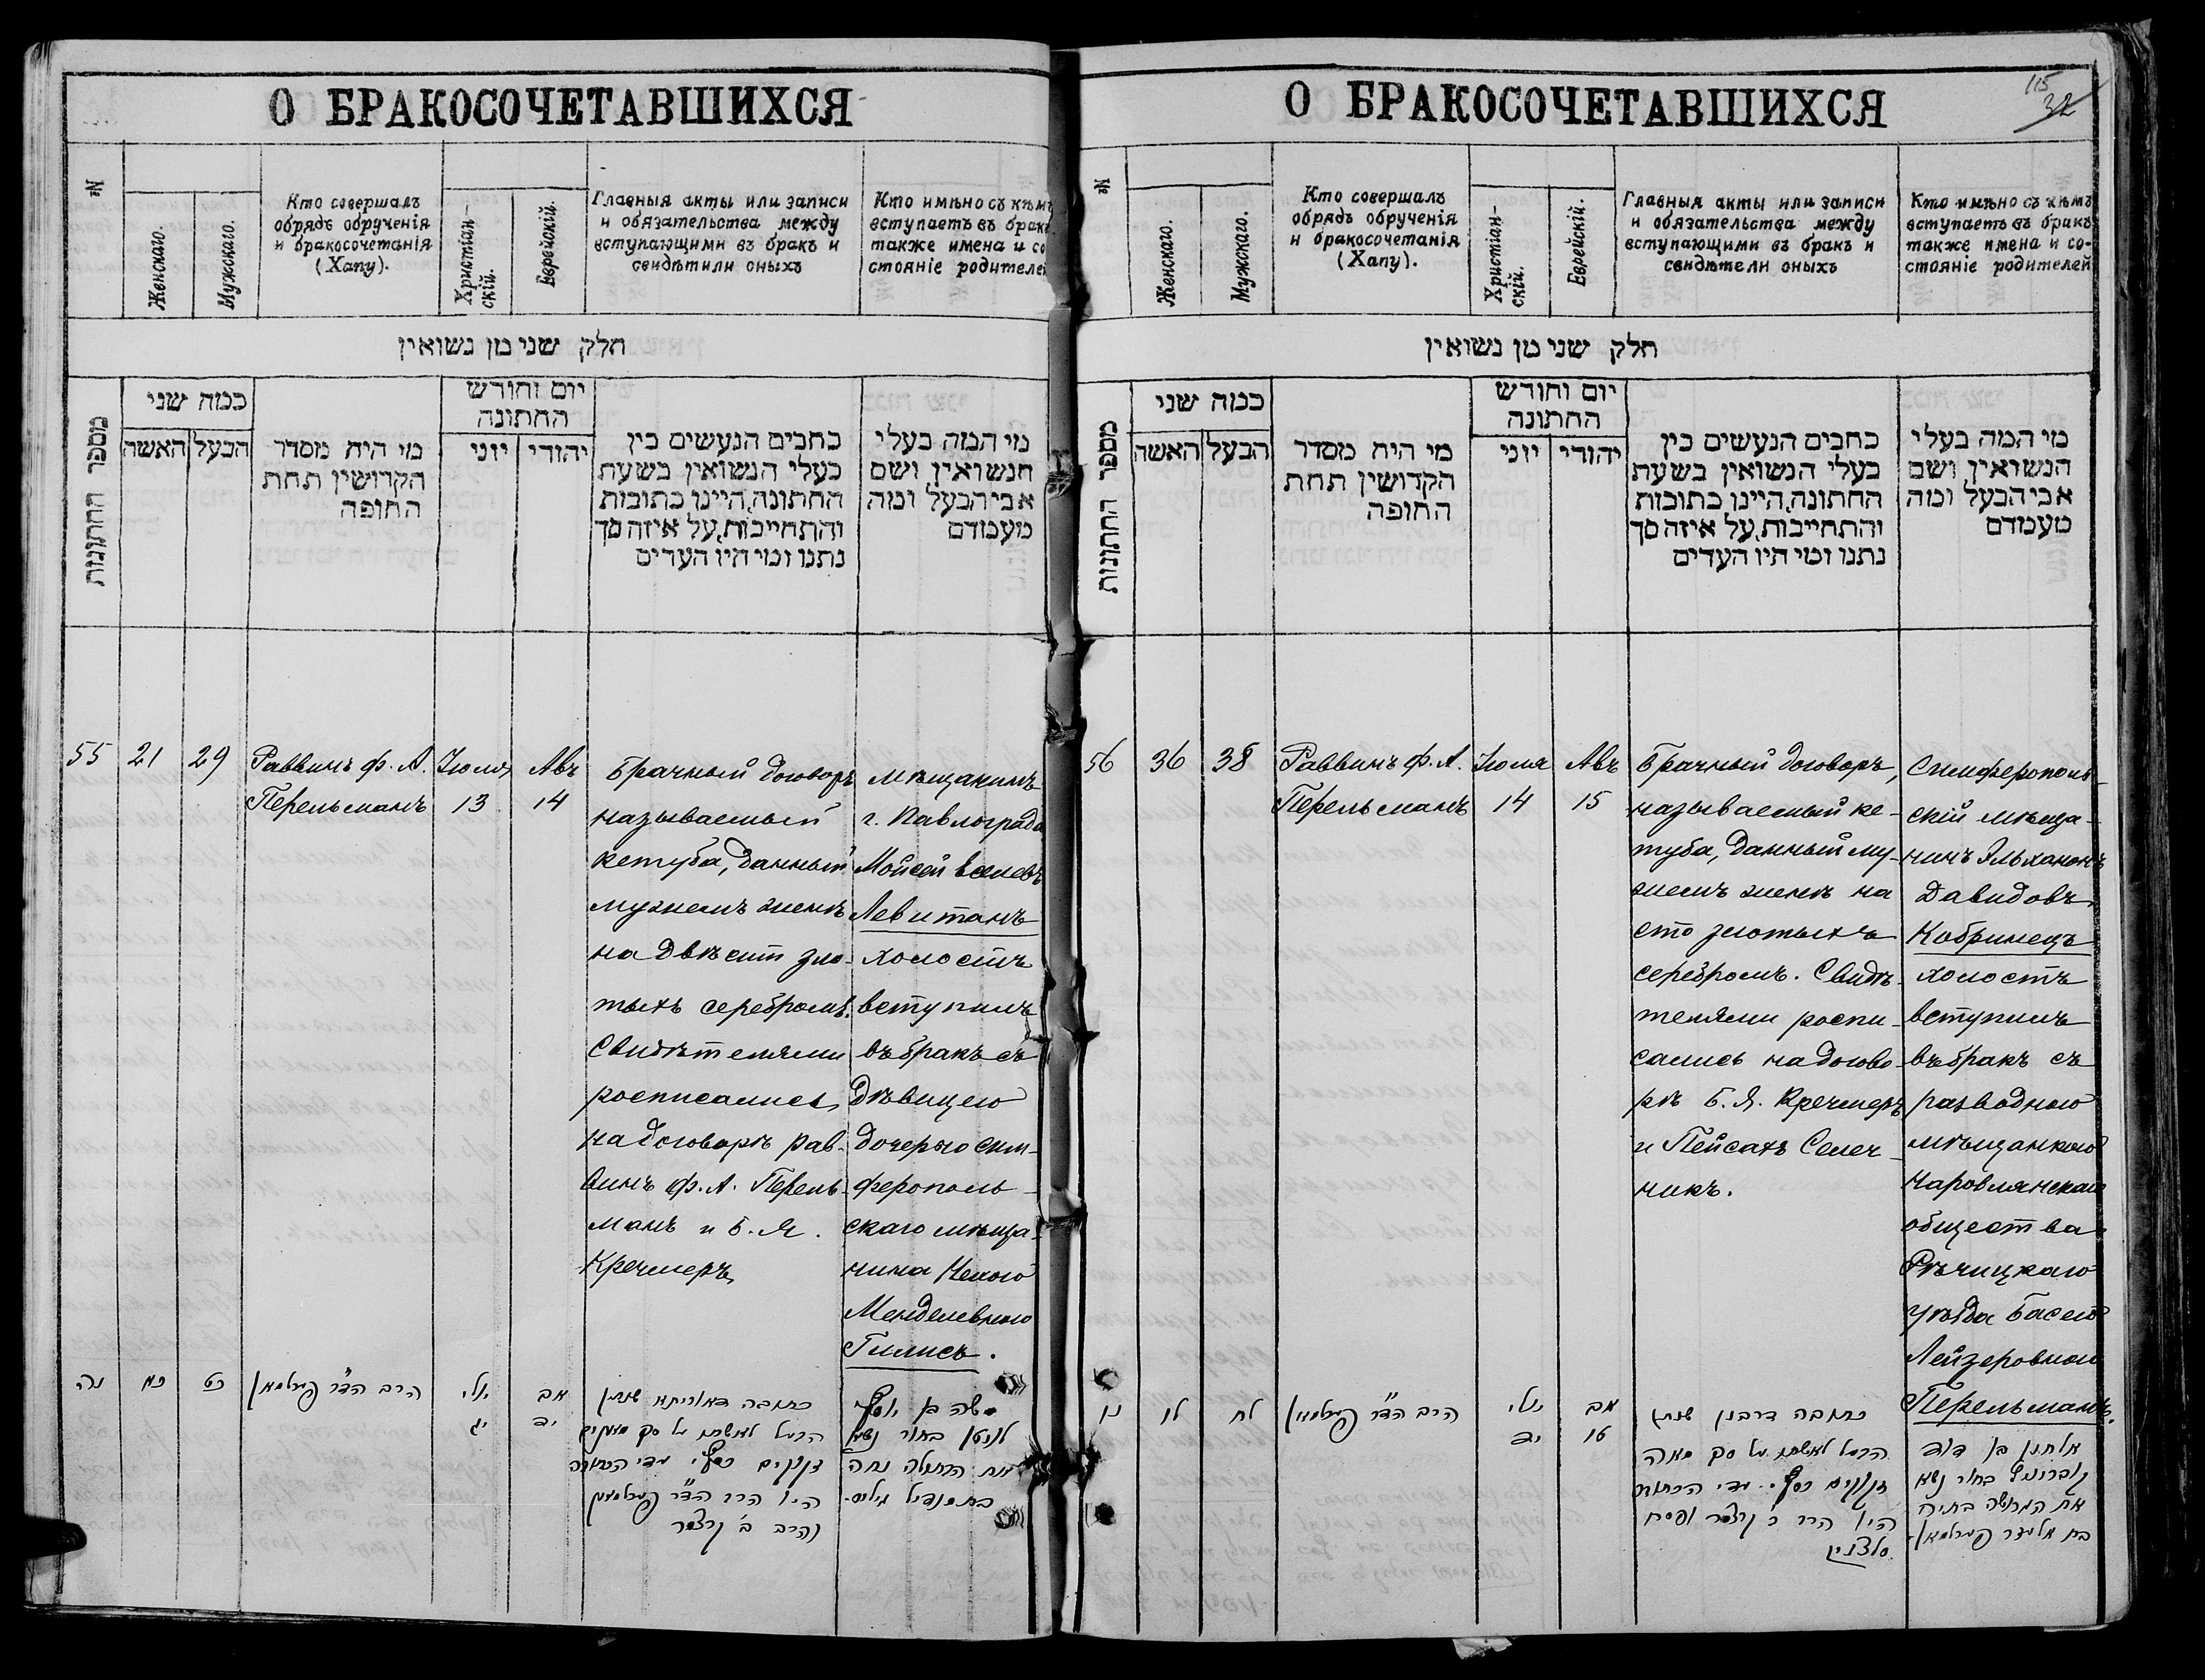 О БРАКОСОЧЕТАВШИХСЯ
№
Женскаго.
Мужскаго.
Кто совершалъ
обрядъ обрученія
и бракосочетанія
(Хапу).
Христіан-
скій.
Еврейскій.
Главныя акты или записи
и обязательства между
вступающими въ бракъ и
свидѣтили оныхъ
Кто имѣно съ кѣмъ
вступаетъ въ бракъ
также имена и со
стояніе родителей
חלק שני מן נשואין
מספר החתונות
כמה שני
האשה
הבעל
מי היה מסדר
הקדושין תחת
החופה
יום וחודש
החתונה
יוני
יהודי
כתבים הנעשים בין
בעלי הנשואין בשעת
החתונה, היינו כתובות
והתחייבות, על איזה סך
נתנו ומי היו העדים
מי המה בעלי
הנשואין ושם
אבי הבעל ומה
מעמדם
55
21
29
Раввинъ Ф. А.
Перельманъ
Іюля
13
Авъ
14
Брачный договоръ
называемый
кетуба, данный
мужемъ женѣ
на двѣсти зло-
тыхъ серебромъ.
Свидѣтелями
росписались
на договорѣ рав-
винъ Ф. А. Перель-
манъ и Б. Я.
Кречмеръ
Мѣщанинъ
г. Павлограда
Мойсей
Левитанъ
холостъ
вступилъ
въ бракъ съ
дѣвицею
дочерью сим-
ферополь-
скаго мѣща-
нина Нехою
Менделевною
Гилисъ.
נה
כא
כט
הרב הד"ר פערלמאן
יולי
יג
אב
יד
כתובה דאוריתא שנתן
הבעל לאשתו על סך מאתים
זקוקים כסף. עדי הכתובה
היו הרב הד"ר פערלמאן
והרב ב' קרצמר
משה בן יוסף
לויטן בחור נשא
את הבתולה נחה
בת מנדיל גיליס.
О БРАКОСОЧЕТАВШИХСЯ
115
32
№
Женскаго.
Мужскаго.
Кто совершалъ
обрядъ обрученія
и бракосочетанія
(Хапу).
Христіан-
скій.
Еврейскій.
Главныя акты или записи
и обязательства между
вступающими въ бракъ и
свидѣтели оныхъ
Кто имѣно съ кѣмъ
вступаетъ въ бракъ
также имена и со-
стояніе родителей
חלק שני מן נשואין
מספר החתונות
כמה שני
האשה
הבעל
מי היה מסדר
הקדושין תחת
החופה
יום וחודש
החתונה
יוני
יהודי
כתבים הנעשים בין
בעלי הנשואין בשעת
החתונה, היינו כתובות
והתחייבות, על איזה סך
נתנו ומי היו העדים
מי המה בעלי
הנשואין ושם
אבי הבעל ומה
מעמדם
56
36
38
Раввинъ Ф. А.
Перельманъ
Іюля
14
Авъ
15
Брачный договоръ,
называемый ке-
туба, данный му-
жемъ женѣ на
сто злотыхъ
серебромъ. Свидѣ-
телями роспи-
сались на догово-
рѣ Б. Я. Кречмеръ
и Пейсахъ Селеч-
никъ.
Симферополь-
скій мѣща-
нинъ Эльхононъ
Давидовъ
Кобринецъ
холостъ
вступилъ
въ бракъ съ
разводною
мѣщанкою
Наровлянскаго
общества
Рѣчицкаго
уѣзда Басею
Лейзеровною
Перельманъ.
נו
לו
לח
הרב הד"ר פערלמאן
יולי
יד
אב
טו
כתובה דרבנן שנתן
הבעל לאשתו על סך מאה
זקוקים כסף. עדי הכתובה
היו הרב ב' קרצמר ופסח
סלצניק
אלחנן בן דוד
קוברינץ בחור נשא
את הגרושה בתיה
בת אליעזר פערלמאן.